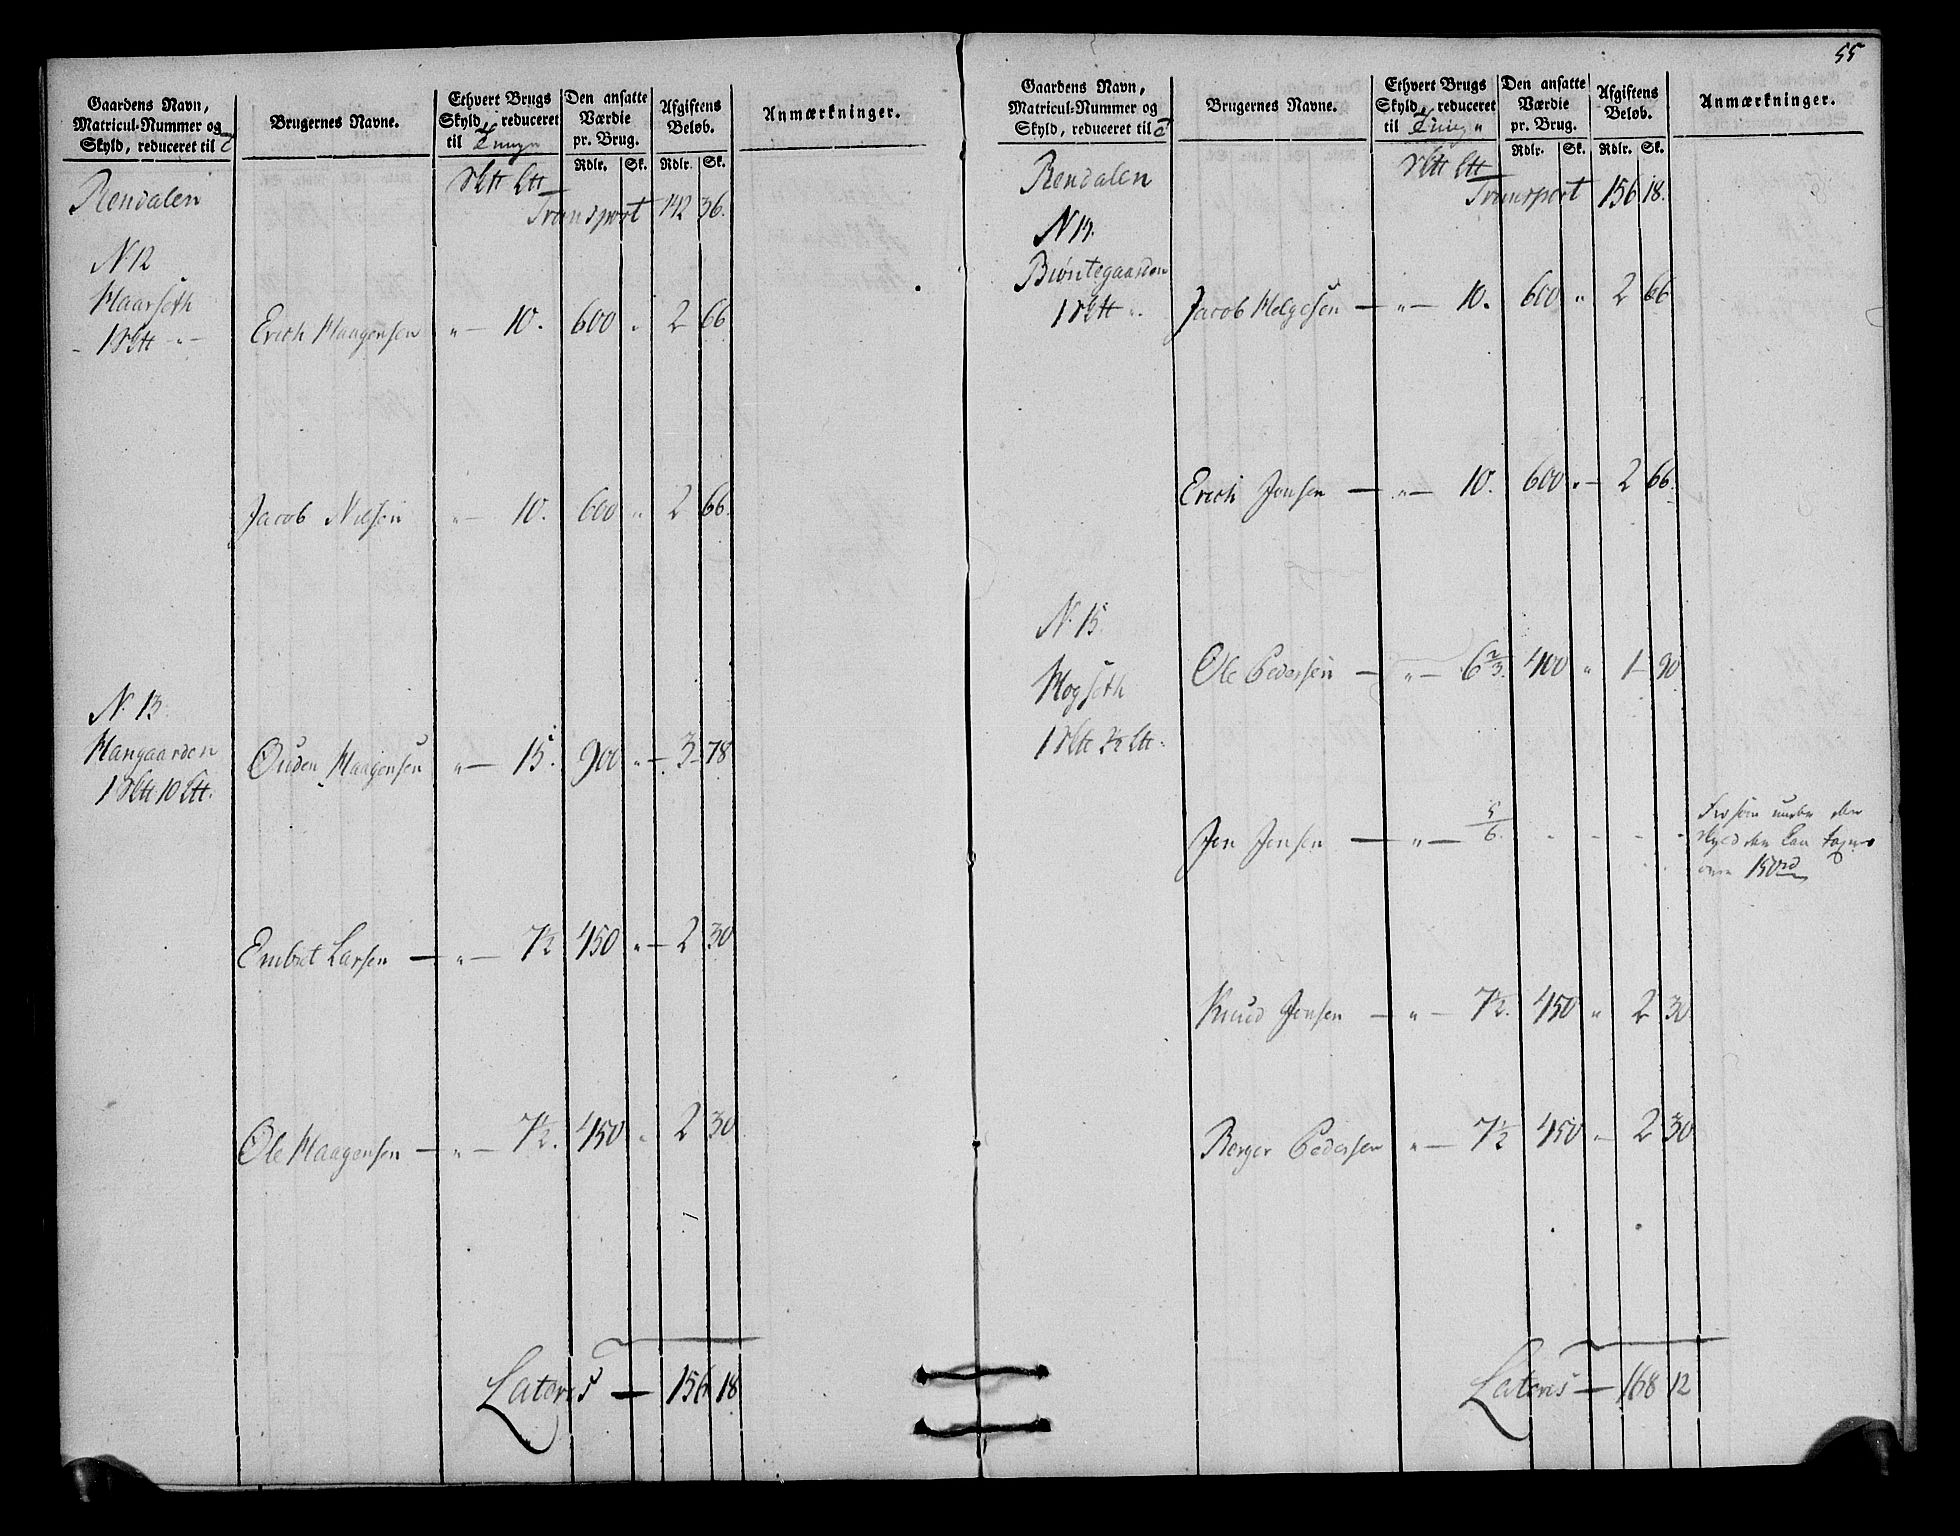 55
Gaardens Navn,
Matricul-Nummer og
Skyld, reduceret til
Brugernes Navne.
Ethvert Brugs
Skyld, reduceret
til Tunge
Den ansatte
Værdie
pr. Brug.
Rdlr. Sk.
Afgiftens
Beløb.
Rdlr. Sk.
Anmærkninger.
Rendalen
Transport 142 36.
N 12
Haarseth
Erich Haagensen " 10. 600 " 2 66
Jacob Nilsen " 10. 600 " 2 66.
N. 13.
Hangaarden
Ouden Haagensen " 15. 900 " 3 78
Embret Larsen " 7½ 450 " 2 30
Ole Haagensen " 7½. 450 " 2 30
Lateris 156 18
Gaardens Navn,
Matricul-Nummer og
Skyld, reduceret til
Brugernes Navne.
Ethvert Brugs
Skyld, reduceret
til Tunge
Den ansatte
Værdie
pr. Brug.
Rdlr. Sk.
Afgiftens
Beløb.
Rdlr. Sk.
Anmærkninger.
Rendalen
Transport 156 18.
Biøntegaarden
Jacob Helgesen " 10. 600 " 2 66
Erich Jensen " 10. 600 " 2 66.
N. 15
Ole Pedersen " 6⅔. 400 " 1 90
Hogseth
Jon Jensen " 5/6.
150
Knud Jensen " 7½. 450 " 2 30
Berger Pedersen " 7½ 450 " 2 30
Lateris 168 12